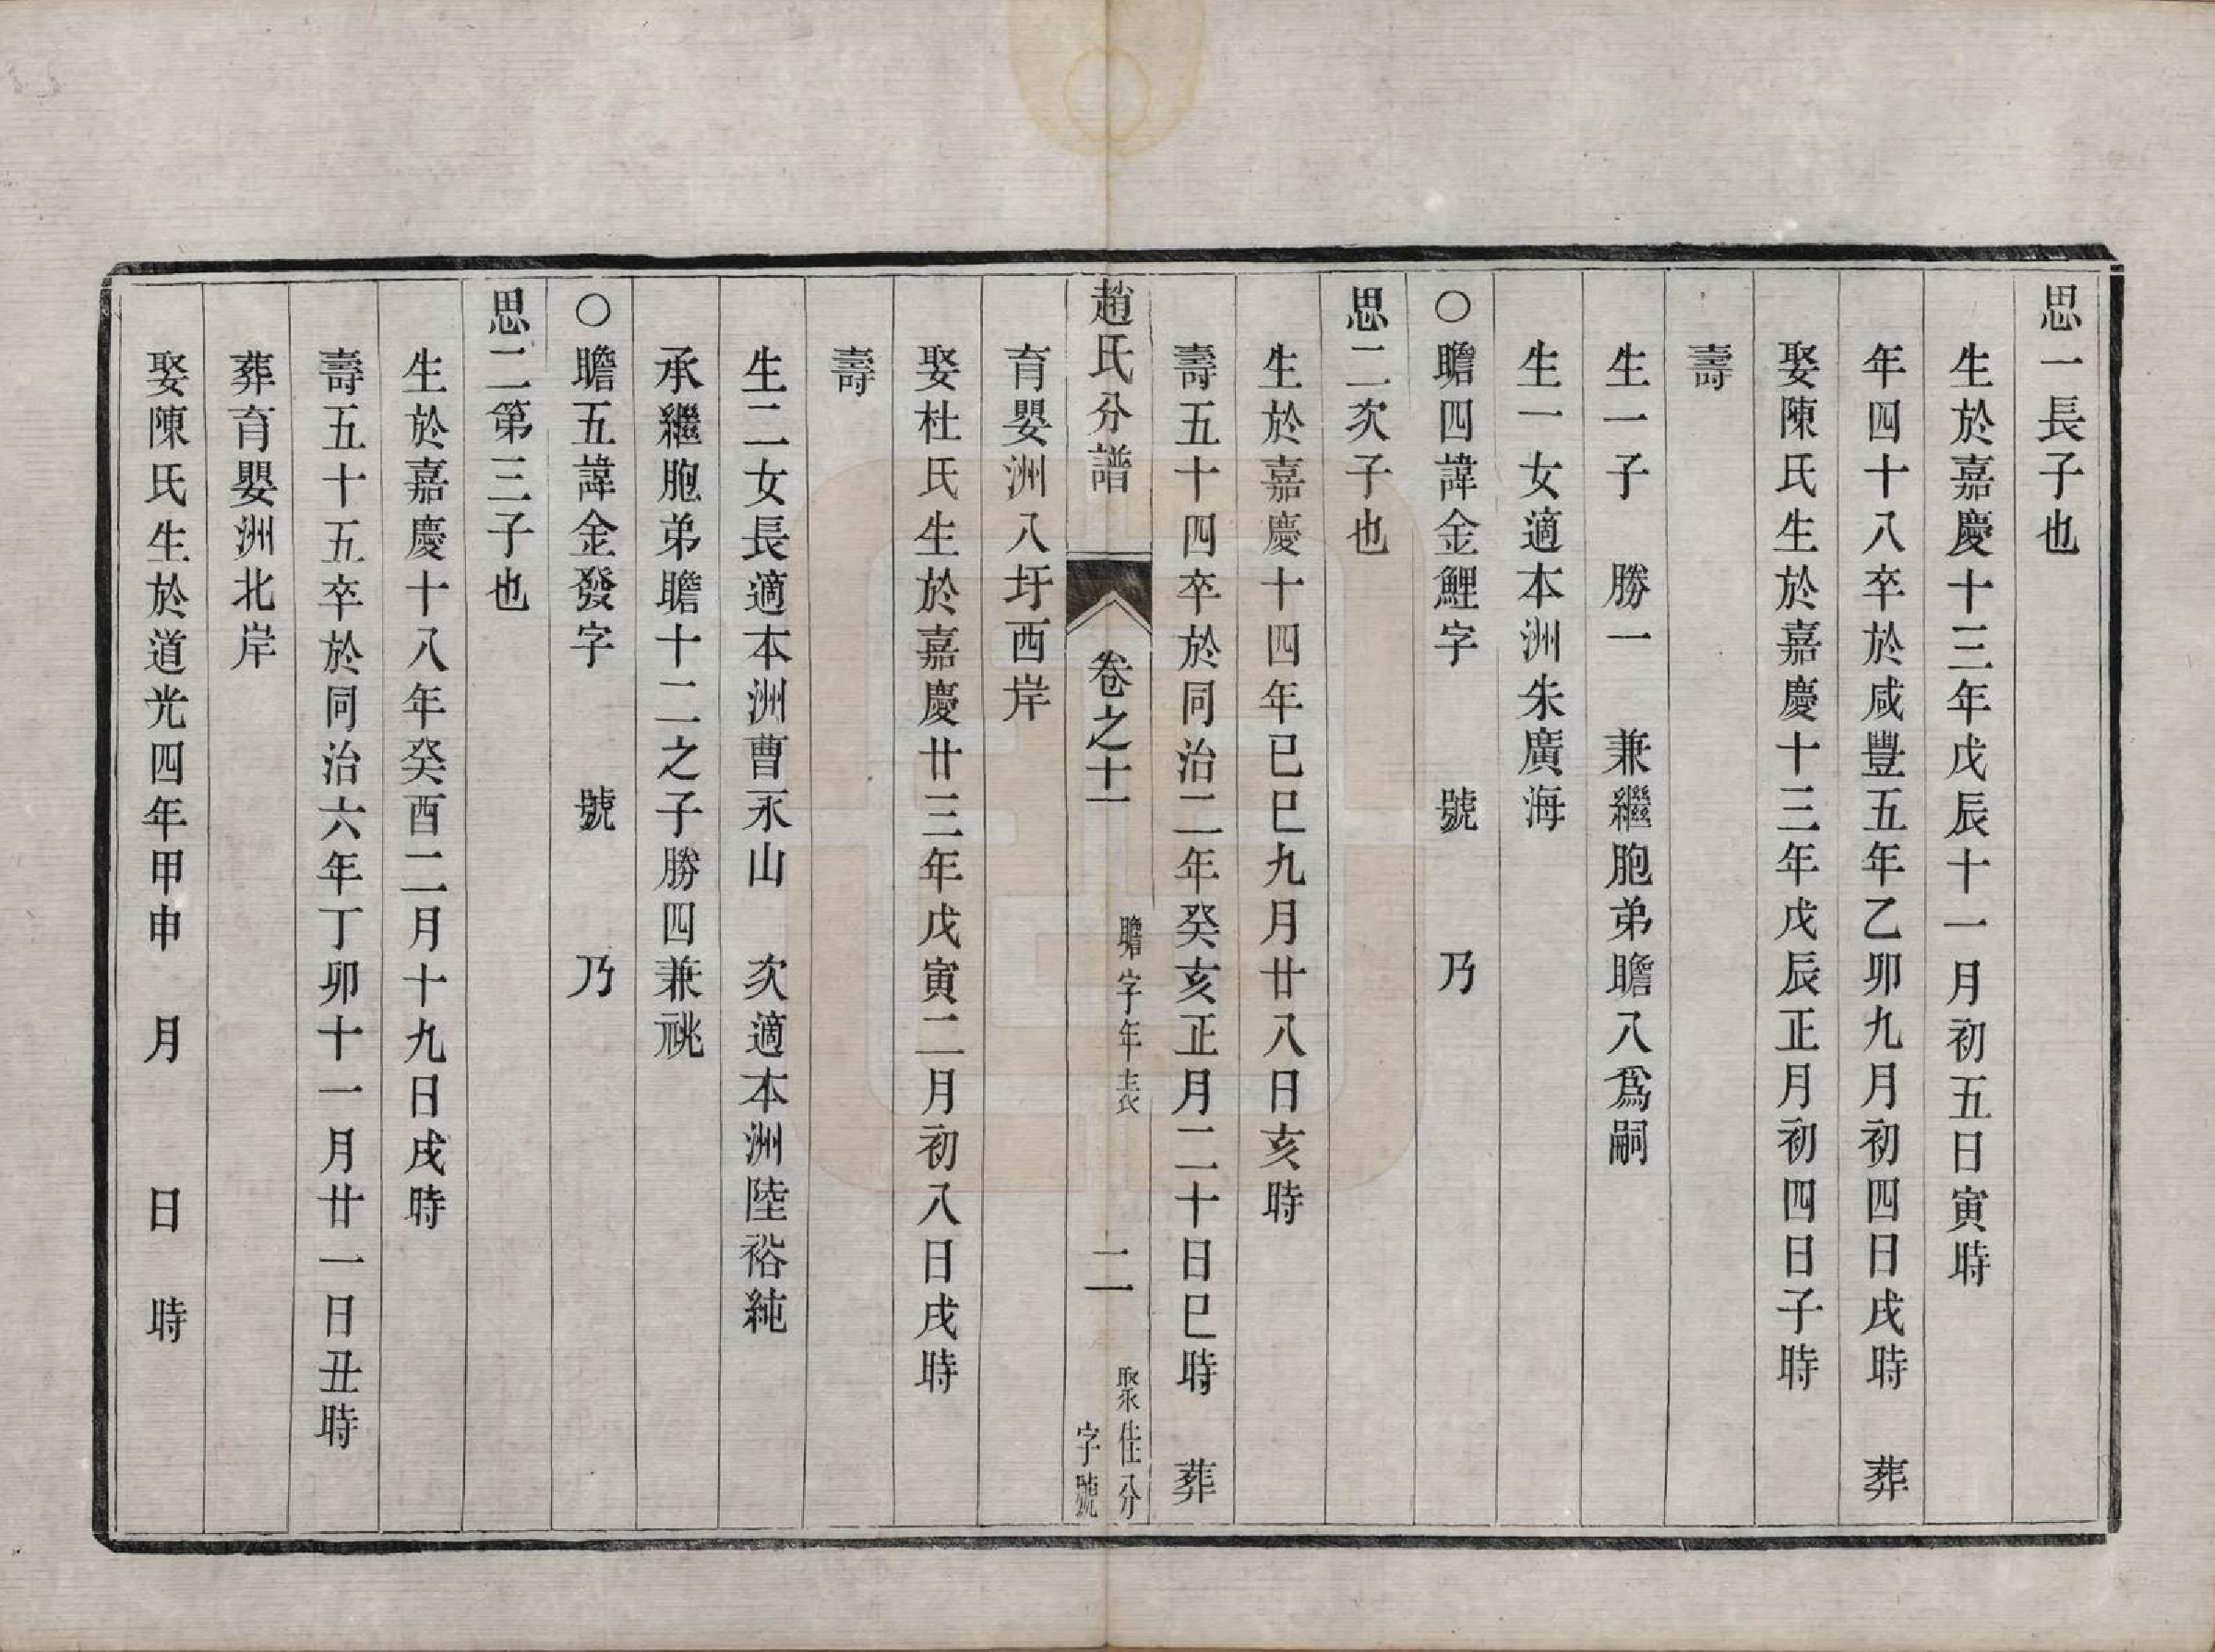 思一長子也
生於嘉慶十三年戊辰十一月初五日寅時
年四十八卒於咸豐五年乙卯九月初四日戌時　葬
娶陳氏生於嘉慶十三年戊辰正月初四日子時
壽
生一子　勝一　兼繼胞弟瞻八爲嗣
生一女適本洲朱廣海
○瞻四諱金鯉字　　號　　乃
思二次子也
生於嘉慶十四年己巳九月廿八日亥時
壽五十四卒於同治二年癸亥正月二十日巳時　葬
趙氏分譜　卷之十一　瞻字年表　二　聚佳分
字號
育嬰洲八圩西岸
娶杜氏生於嘉慶廿三年戊寅二月初八日戌時
壽
生二女長適本洲曹永山　次適本洲陸裕純
承繼胞弟瞻十二之子勝四兼祧
○瞻五諱金發字　　號　　乃
思二第三子也
生於嘉慶十八年癸酉二月十九日戌時
壽五十五卒於同治六年丁卯十一月廿一日丑時
葬育嬰洲北岸
娶陳氏生於道光四年甲申　月　　日　時